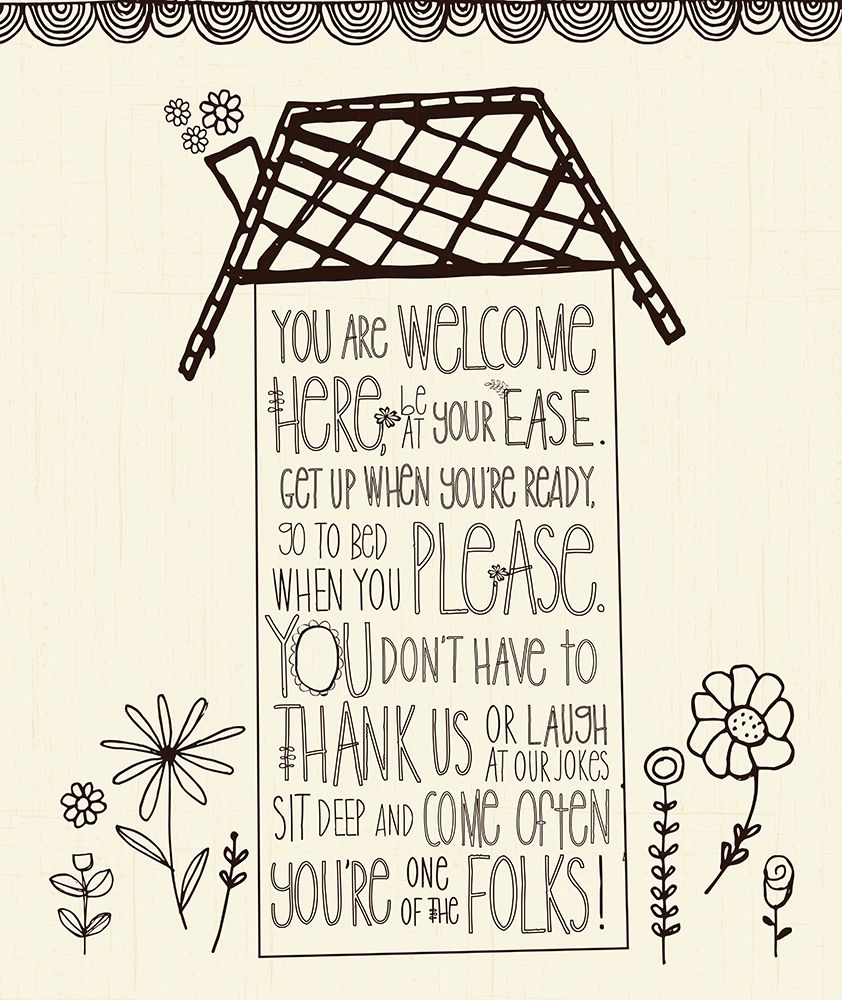 YOU ARE WELCOME
HERE, be AT YOUR EASE.
GET UP WHEN YOU'RE READY,
GO TO BED
WHEN YOU PLEASE.
YOU DON'T HAVE TO
THANK US OR LAUGH
AT OUR JOKES
SIT DEEP AND COME OFTEN
YOU'RE ONE OF THE FOLKS!